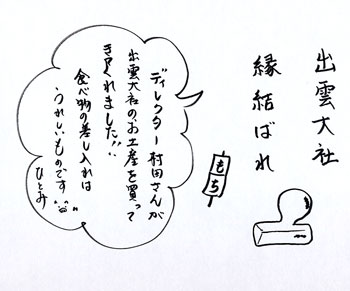 出雲大社
縁結ばれ
もち
ディレクター村田さんが
出雲大社のお土産を買って
きてくれました!!
食べ物の差し入れは
うれしいものです
ひとみ